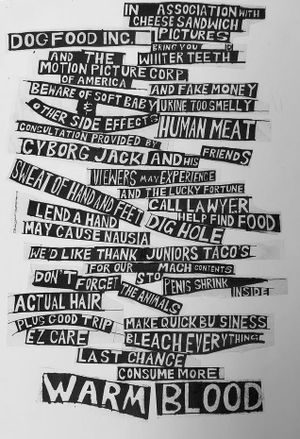 IN ASSOCIATION WITH
CHEESE SANDWICH
DOG FOOD INC. PICTURES
BRING YOU
AND THE WHITER TEETH
MOTION PICTURE CORP
OF AMERICA
BEWARE OF SOFT BABY AND FAKE MONEY
& URINE TOO SMELLY
OTHER SIDE EFFECTS
CONSULTATION PROVIDED BY HUMAN MEAT
CYBORG JACK AND HIS FRIENDS
VIEWERS MAY EXPERIENCE
SWEAT OF HAND AND FEET
AND THE LUCKY FORTUNE
CALL LAWYER
LEND A HAND DIG HOLE HELP FIND FOOD
MAY CAUSE NAUSIA
WE'D LIKE THANK JUNIORS TACO'S
FOR OUR MACH CONTENTS
DON'T FORGET STO PENIS SHRINK INSIDE
THE ANIMALS
ACTUAL HAIR
PLUS GOOD TRIP MAKE QUICK BUSINESS
EZ CARE BLEACH EVERYTHING
LAST CHANCE
CONSUME MORE!
WARM BLOOD